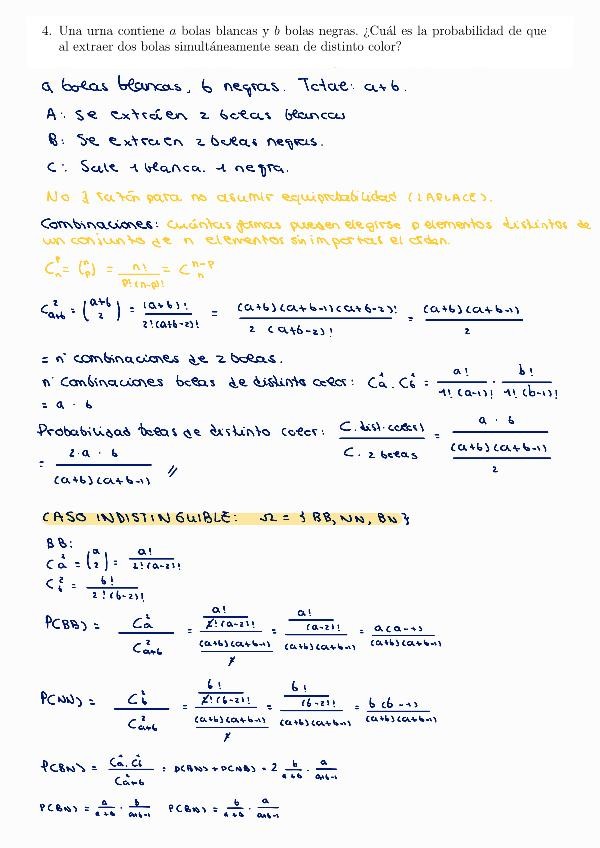 4. Una urna contiene a bolas blancas y b bolas negras. ¿Cuál es la probabilidad de que
al extraer dos bolas simultáneamente sean de distinto color?
a bolas blancas, b negras. Total: a+b.
A: Se extráen 2 bolas blancas
B: Se extraen 2 bolas negras.
C: Sale 1 blanca. 1 negra.
No ∃ razón para no asumir equiprobabilidad (LAPLACE).
Combinaciones: Cuántas formas pueden elegirse p elementos distintos de
un conjunto de n elementos sin importar el orden.
C_n^p = (n p) = n! / p!(n-p)! = C_n^{n-p}
C_{a+b}^2 = (a+b 2) = (a+b)! / 2!(a+b-2)! = (a+b)(a+b-1)(a+b-2)! / 2 (a+b-2)! = (a+b)(a+b-1) / 2
= nº combinaciones de 2 bolas.
nº Combinaciones bolas de distinto color: C_a^1 . C_b^1 = a! / 1!(a-1)! · b! / 1!(b-1)!
= a · b
Probabilidad bolas de distinto color: C.dist.color) / C. 2 bolas = a · b / (a+b)(a+b-1) / 2
= 2·a · b / (a+b)(a+b-1) //
CASO INDISTINGUIBLE: Ω = { BB, NN, BN }
BB:
C_a^2 = (a 2) = a! / 2!(a-2)!
C_b^2 = b! / 2!(b-2)!
P(BB) = C_a^2 / C_{a+b}^2 = a! / 2!(a-2)! / (a+b)(a+b-1) / 2 = a! / (a-2)! / (a+b)(a+b-1) = a(a-1) / (a+b)(a+b-1)
P(NN) = C_b^2 / C_{a+b}^2 = b! / 2!(b-2)! / (a+b)(a+b-1) / 2 = b! / (b-2)! / (a+b)(a+b-1) = b(b-1) / (a+b)(a+b-1)
P(BN) = C_a^1 . C_b^1 / C_{a+b}^2 = P(BN)+P(NB) = 2 b / a+b · a / a+b-1
P(BN) = a / a+b · b / a+b-1 P(BN) = b / a+b · a / a+b-1